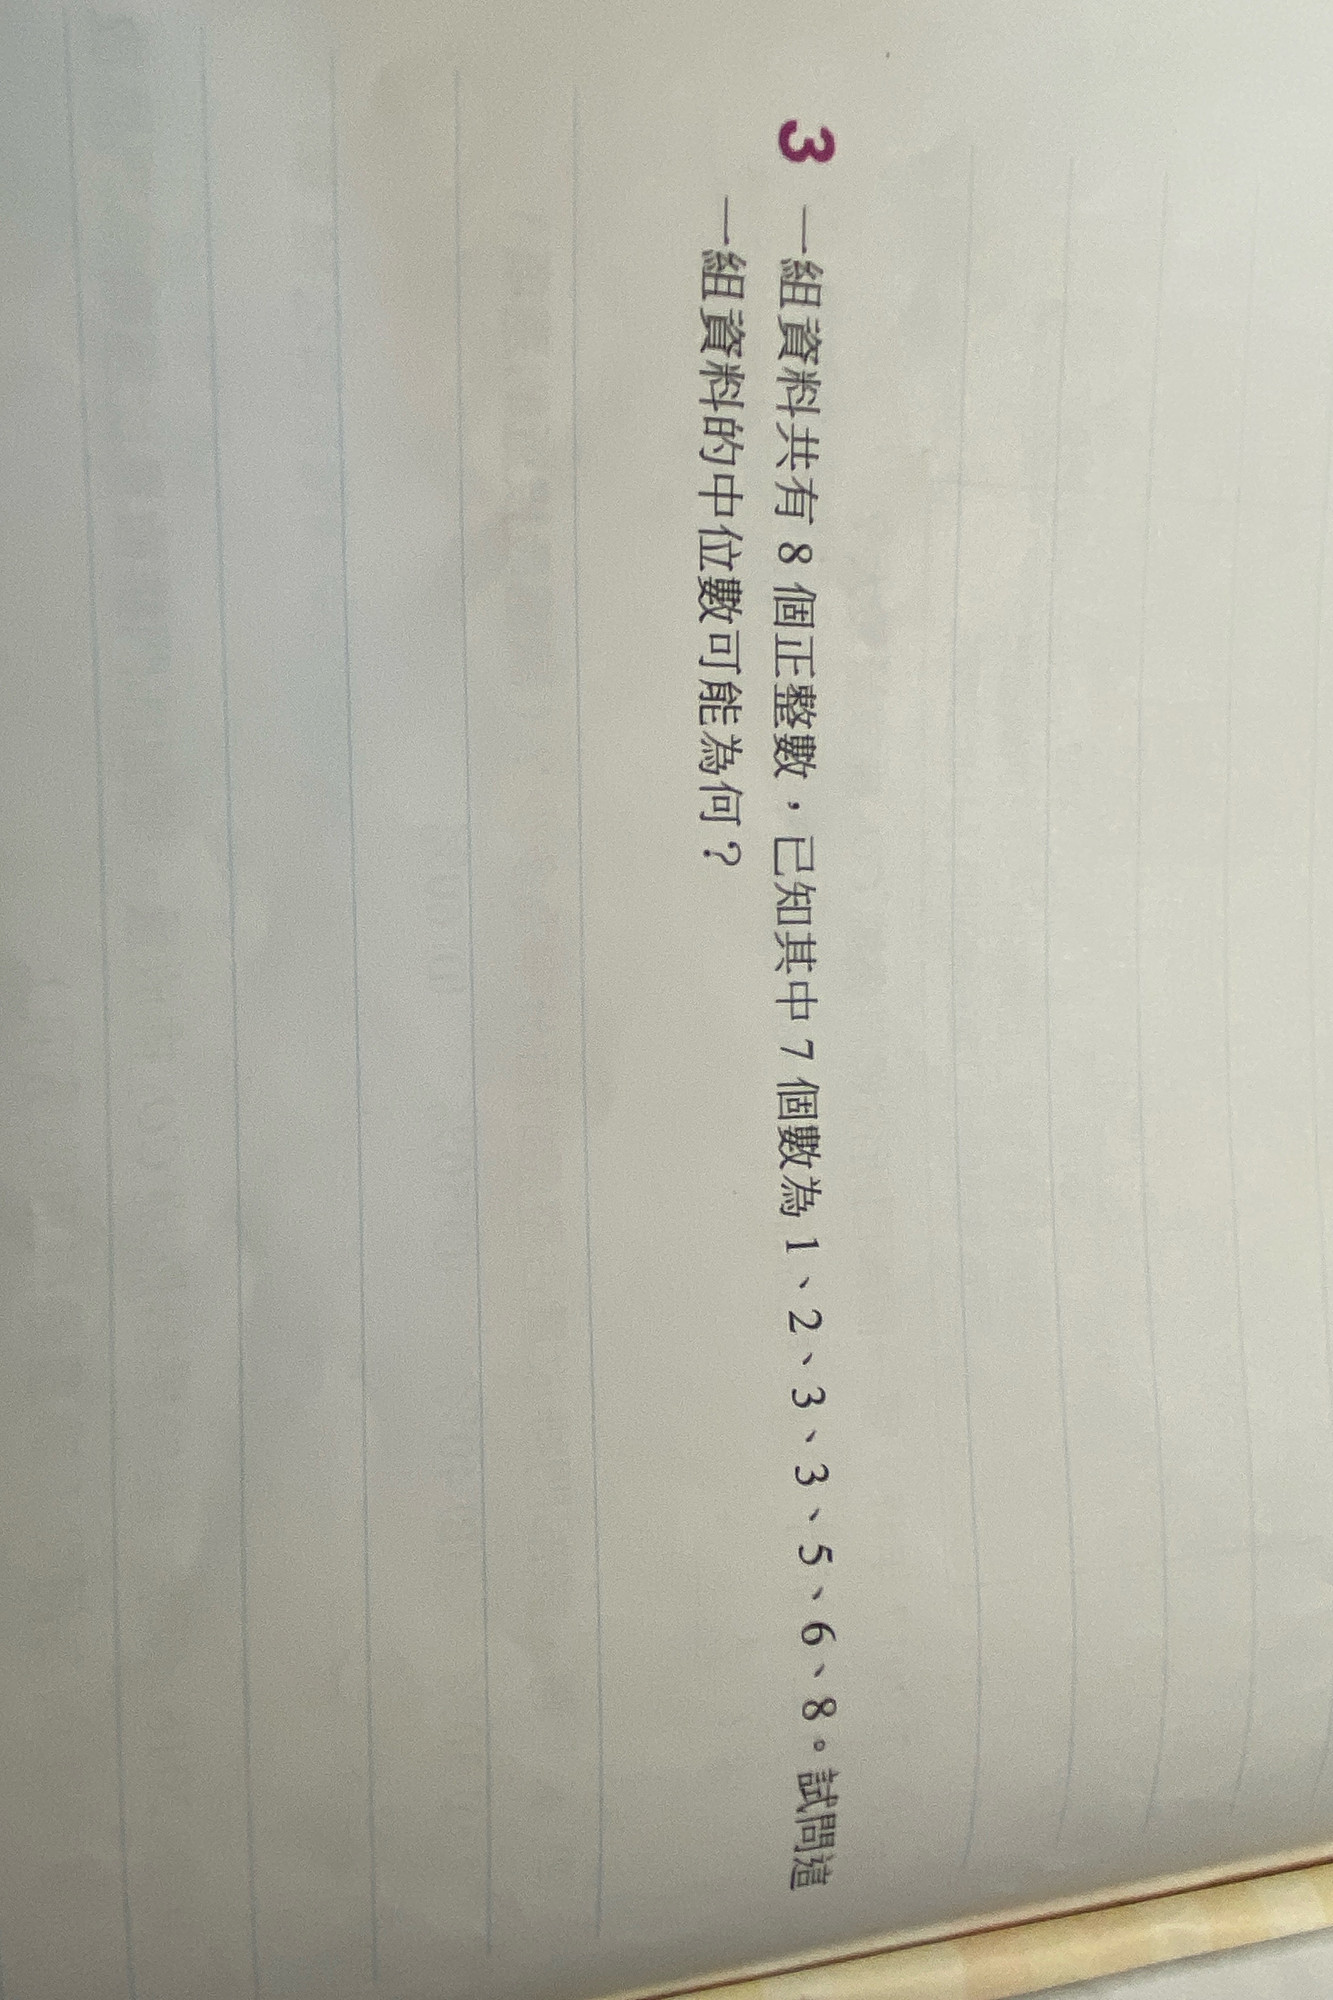 3 一組資料共有 8 個正整數,已知其中 7 個數為 1、2、3、3、5、6、8。試問這
一組資料的中位數可能為何?